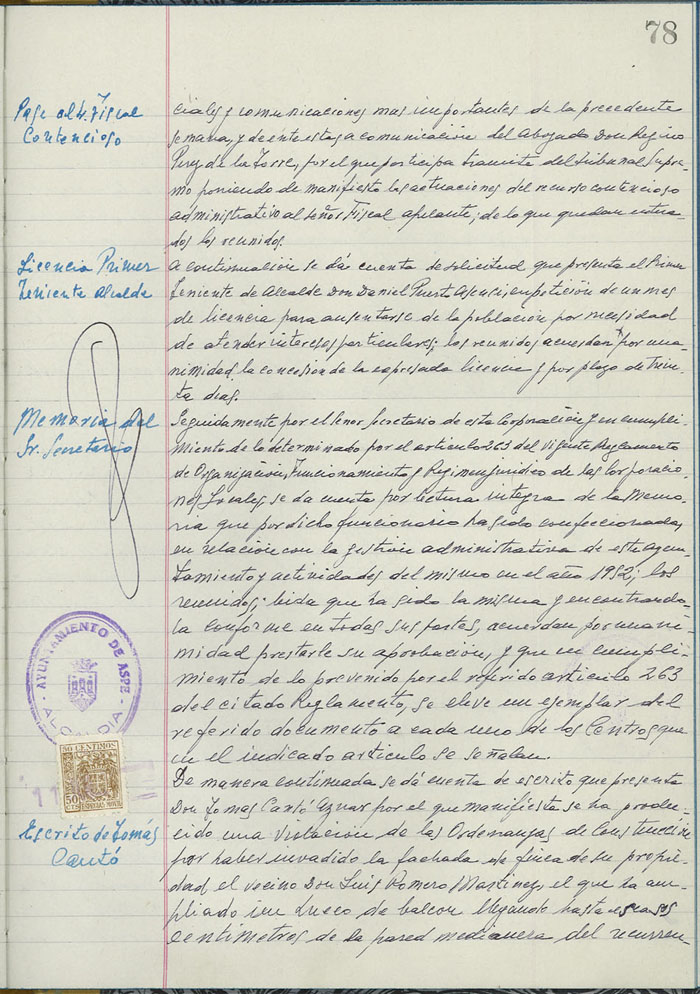 78
Pase al Sr. Fiscal
Contencioso
ciales y comunicaciones mas importantes de la precedente
semana, y de entre estas a comunicación del Abogado Don Regino
Perez de la Torre, por el que participa tramite del tribunal Supre-
mo poniendo de manifiesto las actuaciones del recurso contencioso
administrativo al señor Fiscal apelante; de lo que quedan entera-
dos los reunidos.
Licencia Primer
Teniente Alcalde
A continuación se dá cuenta de solicitud que presenta el Primer
Teniente de Alcalde Don Daniel Puerto Asensi, en petición de un mes
de licencia para ausentarse de la población por necesidad
de atender intereses particulares; los reunidos acuerdan por una-
nimidad la concesión de la expresada licencia y por plazo de trein-
ta dias.
Memoria del
Sr. Secretario
Seguidamente por el Señor Secretario de esta Corporación y en cumpli-
miento de lo determinado por el articulo 263 del vigente Reglamento
de Organización, Funcionamiento y Regimen Juridico de las Corporacio-
nes Locales, se da cuenta por lectura integra de la Memo-
ria que por dicho funcionario ha sido confeccionada,
en relación con la gestión administrativa de este Ayun-
tamiento y actividades del mismo en el año 1952; los
reunidos, leida que ha sido la misma y encontrando-
la conforme en todas sus partes, acuerdan por unani-
midad prestarle su aprobación, y que en cumpli-
miento de lo prevenido por el referido articulo 263
del citado Reglamento, se eleve un ejemplar del
referido documento a cada uno de los Centros que
en el indicado articulo se señalan.
AYUNTAMIENTO DE ASPE
ALCALDIA
50 CENTIMOS
50 CTS
ESPECIAL MOVIL
11
Escrito de Tomás
Cantó
De manera continuada se dá cuenta de escrito que presenta
Don Tomas Cantó Aznar por el que manifiesta se ha produ-
cido una violación de las Ordenanzas de Construcción
por haber invadido la fachada de finca de su propie-
dad el vecino Don Luis Romero Martinez, el que ha am-
pliado un hueco de balcon llegando hasta escasos
centimetros de la pared medianera del recurren-